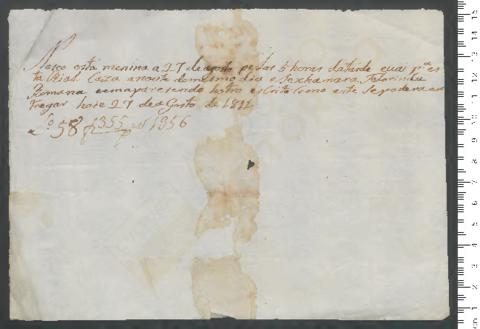 Naseo esta menina a 27 de agosto pellas 5 horas datarde e vai pª es
ta Rial Caza anoute do mesmo dia e se xhamara Felerinda
Romana e em apare sendo hotro es crito como este se podera en
tregar hoie 27 de a Gosto de 1812
Lº 58 f 355 nº 1356